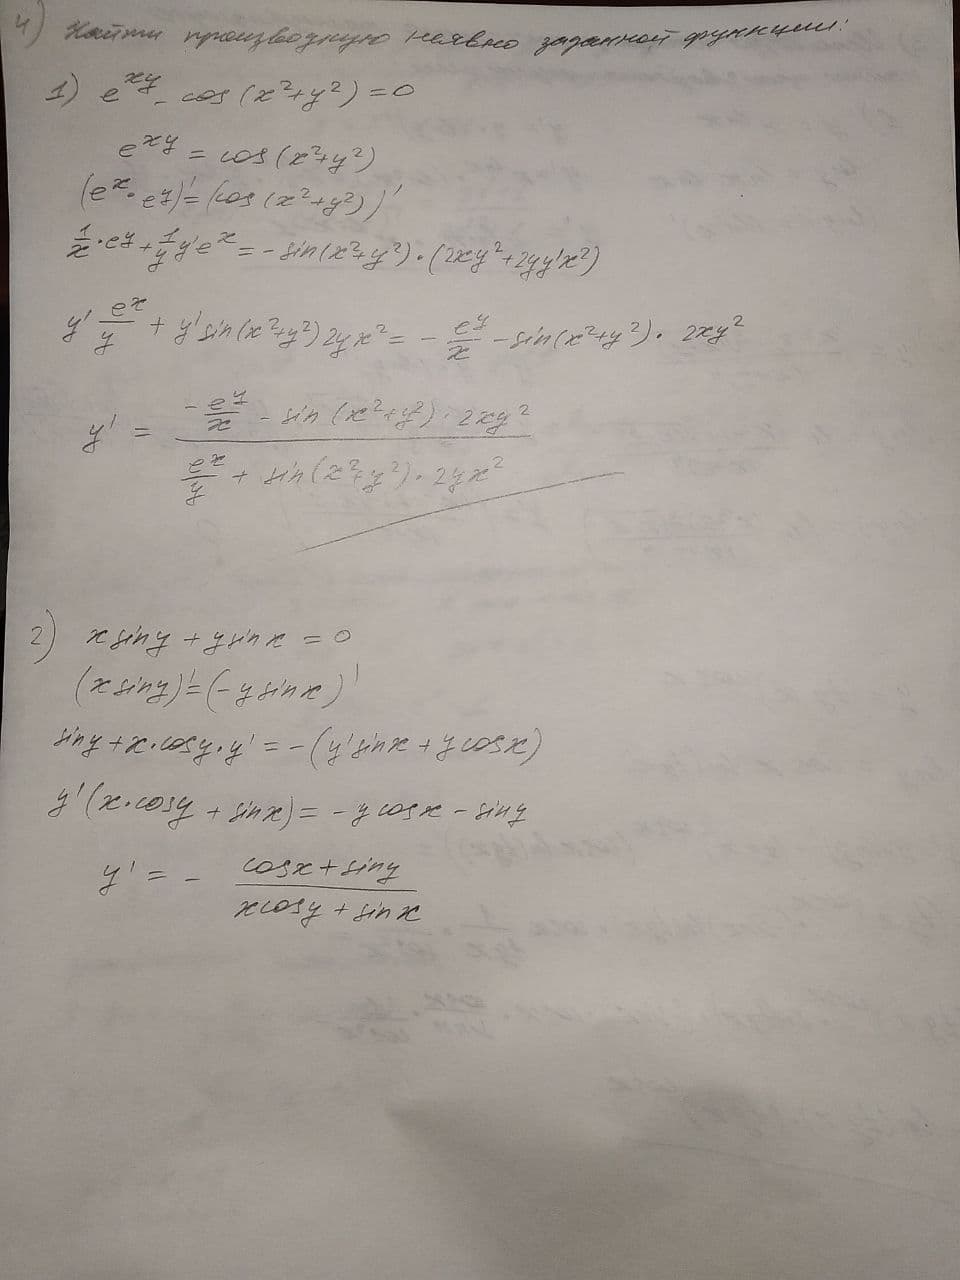 4) Найти производную неявно заданной функции:
1) e^{xy} - cos(x²+y²)=0
e^{xy} = cos(x²+y²)
(e^x · e^y)' = (cos(x²+y²))'
1/x · e^y + 1/y y' e^x = - sin(x²+y²) · (2xy²+2yy'x²)
y' e^x/y + y' sin(x²+y²) 2yx² = - e^y/x - sin(x²+y²) · 2xy²
y' = (- e^y/x - sin(x²+y²) · 2xy²) / (e^x/y + sin(x²+y²) · 2yx²)
2) x sin y + y sin x = 0
(x sin y)' = (- y sin x)'
sin y + x · cos y · y' = - (y' sin x + y cos x)
y' (x · cos y + sin x) = - y cos x - sin y
y' = - (cos x + sin y) / (x cos y + sin x)